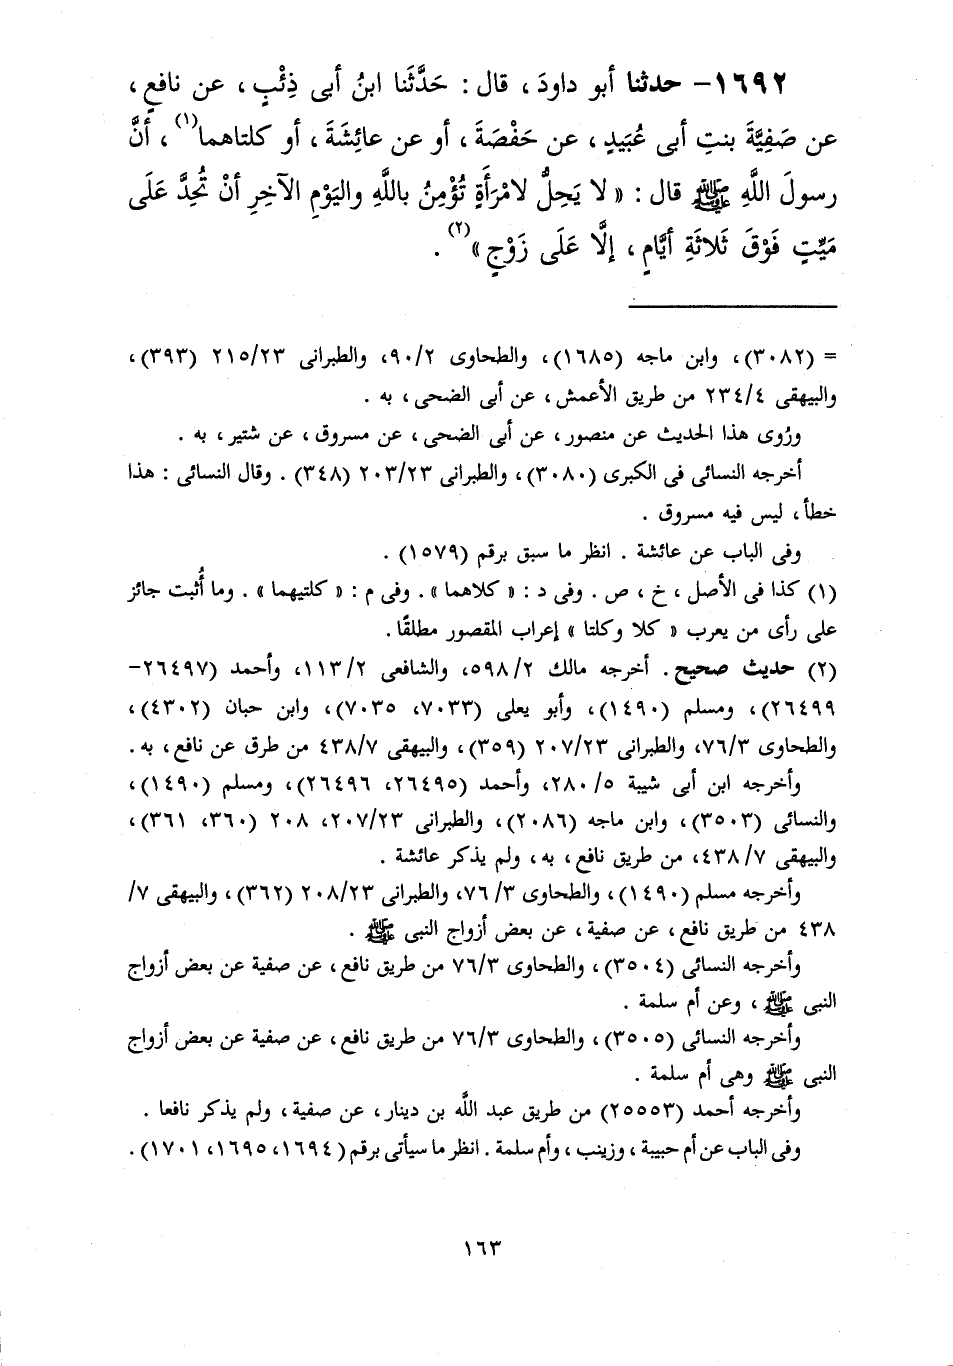 ١٦٩٢- حدثنا أبو داودَ ، قال : حَدَّثَنا ابنُ أبى ذِئْبٍ ، عن نافعٍ ،
عن صَفِيَّةَ بنتِ أبى عُبَيدٍ ، عن حَفْصَةَ ، أو عن عائِشَةَ ، أو كلتاهما(١) ، أنَّ
رسولَ اللَّهِ ﷺ قال : « لا يَحِلُّ لامْرَأَةٍ تُؤْمِنُ باللَّهِ واليَوْمِ الآخِرِ أنْ تُحِدَّ عَلَى
مَيِّتٍ فَوْقَ ثَلاثَةِ أيَّامٍ ، إلَّا عَلَى زَوْجٍ »(٢) .
= (٣٠٨٢)، وابن ماجه (١٦٨٥)، والطحاوى ٩٠/٢، والطبرانى ٢١٥/٢٣ (٣٩٣)،
والبيهقى ٢٣٤/٤ من طريق الأعمش ، عن أبى الضحى ، به .
ورُوى هذا الحديث عن منصور ، عن أبى الضحى ، عن مسروق ، عن شتير ، به .
أخرجه النسائى فى الكبرى (٣٠٨٠) ، والطبرانى ٢٠٣/٢٣ (٣٤٨) . وقال النسائى : هذا
خطأ ، ليس فيه مسروق .
وفى الباب عن عائشة . انظر ما سبق برقم (١٥٧٩) .
(١) كذا فى الأصل ، خ ، ص . وفى د : « كلاهما » . وفى م : « كلتيهما » . وما أُثبت جائز
على رأى من يعرب « كلا وكلتا » إعراب المقصور مطلقًا .
(٢) حديث صحيح . أخرجه مالك ٥٩٨/٢، والشافعى ١١٣/٢، وأحمد (٢٦٤٩٧-
٢٦٤٩٩)، ومسلم (١٤٩٠)، وأبو يعلى (٧٠٣٣، ٧٠٣٥)، وابن حبان (٤٣٠٢)،
والطحاوى ٧٦/٣، والطبرانى ٢٠٧/٢٣ (٣٥٩)، والبيهقى ٤٣٨/٧ من طرق عن نافع ، به .
وأخرجه ابن أبى شيبة ٢٨٠/٥، وأحمد (٢٦٤٩٥، ٢٦٤٩٦)، ومسلم (١٤٩٠)،
والنسائى (٣٥٠٣)، وابن ماجه (٢٠٨٦)، والطبرانى ٢٠٧/٢٣، ٢٠٨ (٣٦٠، ٣٦١)،
والبيهقى ٤٣٨/٧، من طريق نافع ، به ، ولم يذكر عائشة .
وأخرجه مسلم (١٤٩٠)، والطحاوى ٧٦/٣، والطبرانى ٢٠٨/٢٣ (٣٦٢)، والبيهقى ٧/
٤٣٨ من طريق نافع ، عن صفية ، عن بعض أزواج النبى ﷺ .
وأخرجه النسائى (٣٥٠٤)، والطحاوى ٧٦/٣ من طريق نافع ، عن صفية عن بعض أزواج
النبى ﷺ ، وعن أم سلمة .
وأخرجه النسائى (٣٥٠٥)، والطحاوى ٧٦/٣ من طريق نافع ، عن صفية عن بعض أزواج
النبى ﷺ وهى أم سلمة .
وأخرجه أحمد (٢٥٥٥٣) من طريق عبد اللَّه بن دينار ، عن صفية ، ولم يذكر نافعا .
وفى الباب عن أم حبيبة ، وزينب ، وأم سلمة . انظر ما سيأتى برقم (١٦٩٤، ١٦٩٥، ١٧٠١).
١٦٣